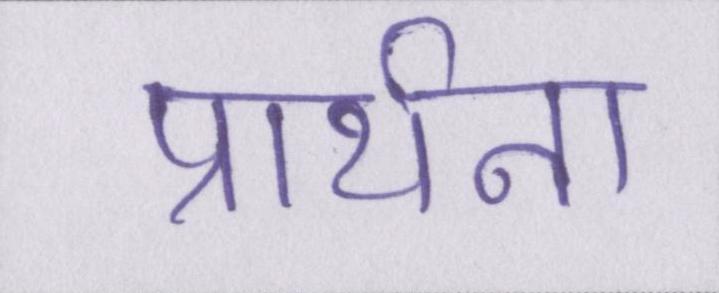 प्रार्थना